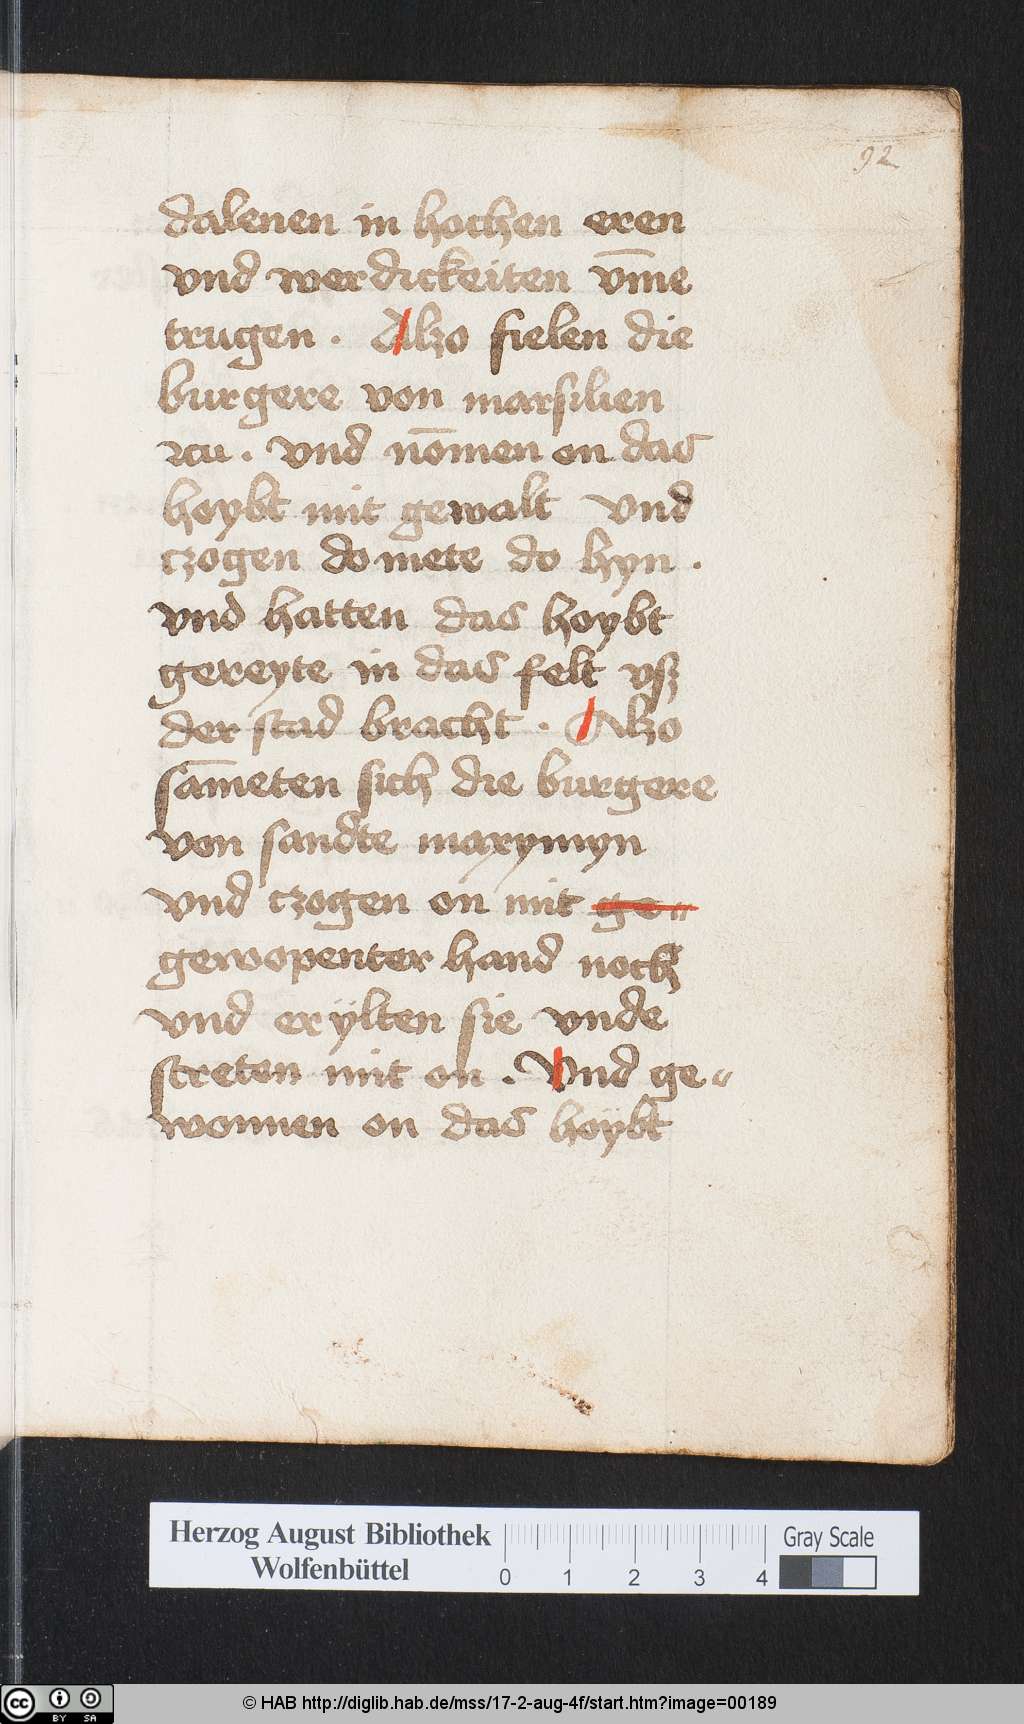 92
dalenen in hochen eren
vnd werdickeiten vm̄e
trugen . Alzo fielen die
burgere von marsilien
zcu . vnd nōmen on das
hoybt mit gewalt vnd
czogen do mete do hyn .
vnd hatten das hoybt
gereyte in das felt vsz
der stad bracht . Alzo
sām̄eten sich die burgere
von sandte maxymyn
vnd czogen on mit ge„
gewopenter hand noch
vnd erÿlten sie vnde
streten mit on . Vnd ge„
wonnen on das hoÿbt
Herzog August Bibliothek
Wolfenbüttel
0 1 2 3 4
Gray Scale
cc BY SA
© HAB http://diglib.hab.de/mss/17-2-aug-4f/start.htm?image=00189